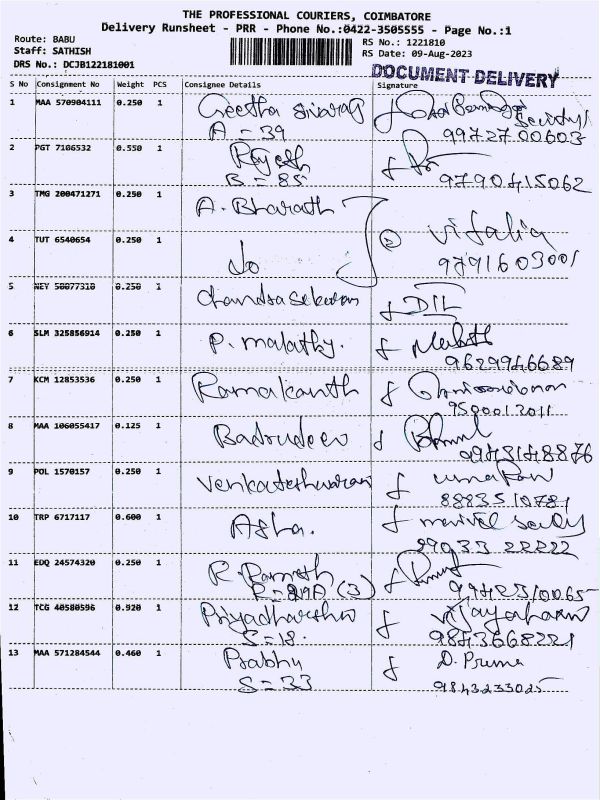 THE PROFESSIONAL COURIERS, COIMBATORE
Delivery Runsheet - PRR - Phone No.:0422-3505555 - Page No.:1
Route: BABU
RS No.: 1221810
Staff: SATHISH
RS Date: 09-Aug-2023
DRS No.: DCJB122181001
DOCUMENT DELIVERY
S No Consignment No Weight PCS Consignee Details Signature
1 MAA 570904111 0.250 1 Geetha Sivaraj
A = 39 9972700603
2 PGT 7106532 0.550 1 Rajesh
B = 85 9790415062
3 TMG 200471271 0.250 1 A. Bharath
4 TUT 6540654 0.250 1 do
9791603001
5 NEY 50077310 0.250 1 Chandrasekaran DIL
6 SLM 325856914 0.250 1 P. Malathy.
9629946689
7 KCM 12853536 0.250 1 Ramakanth
8 MAA 106055417 0.125 1 Badrudeen
9 POL 1570157 0.250 1 Venkateshwaran
8883510781
10 TRP 6717117 0.600 1 Asha.
99033 22222
11 EDQ 24574320 0.250 1 R. Ramesh
12 TCG 40580596 0.920 1 Priyadharshni
S = 18. 9843668221
13 MAA 571284544 0.460 1 Prabhu D. Prema
S = 33 9843233025